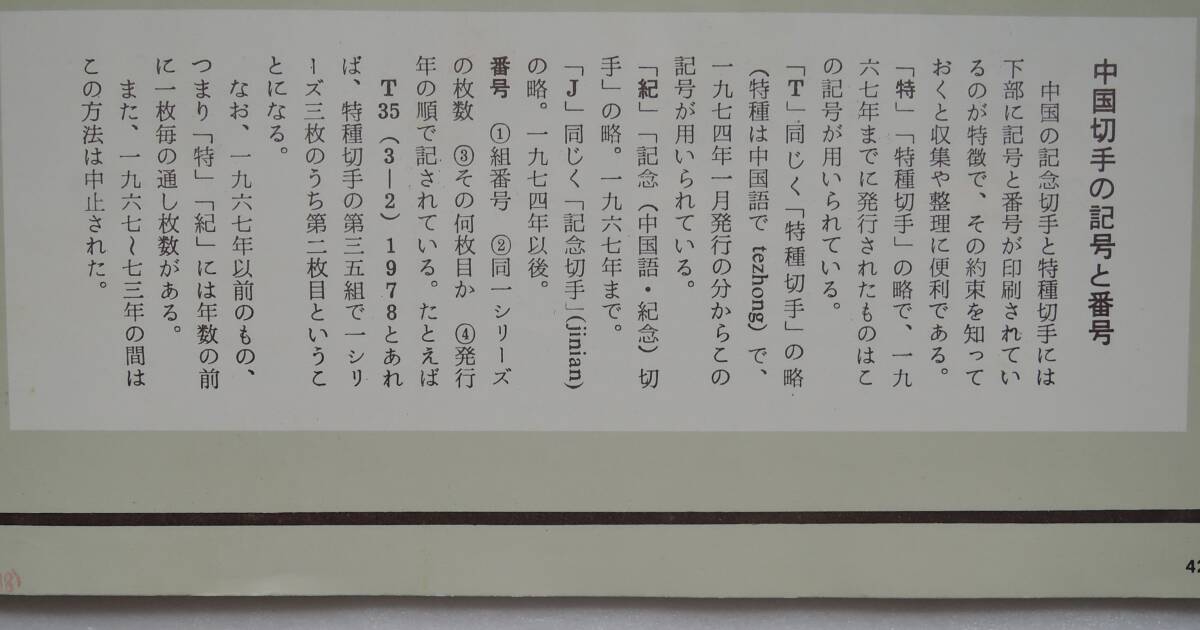 中国切手の記号と番号
中国の記念切手と特種切手には
下部に記号と番号が印刷されてい
るのが特徴で、その約束を知って
おくと収集や整理に便利である。
「特」「特種切手」の略で、一九
六七年までに発行されたものはこ
の記号が用いられている。
「T」同じく「特種切手」の略
(特種は中国語で tezhong)で、
一九七四年一月発行の分からこの
記号が用いられている。
「紀」「記念(中国語・紀念)切
手」の略。一九六七年まで。
「J」同じく「記念切手」(jinian)
の略。一九七四年以後。
番号 ①組番号 ②同一シリーズ
の枚数 ③その何枚目か ④発行
年の順で記されている。たとえば
T35(3―2)1978とあれ
ば、特種切手の第三五組で一シリ
ーズ三枚のうち第二枚目というこ
とになる。
なお、一九六七年以前のもの、
つまり「特」「紀」には年数の前
に一枚毎の通し枚数がある。
また、一九六七〜七三年の間は
この方法は中止された。
42